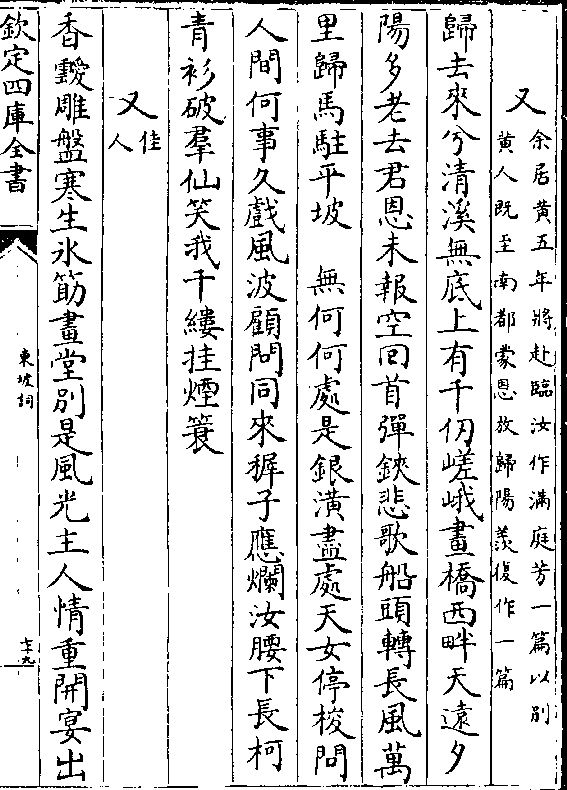 又
余居黄五年將赴臨汝作滿庭芳一篇以别
黄人既至南都蒙恩放歸陽羨復作一篇
歸去來兮清溪無底上有千仞嵯峨畫橋西畔天遠夕
陽多老去君恩未報空回首彈鋏悲歌船頭轉長風萬
里歸馬駐平坡　無何何處是銀潢盡處天女停梭問
人間何事久戲風波顧問同來稺子應爛汝腰下長柯
青衫破羣仙笑我千縷挂煙簑
又
佳
人
香靉雕盤寒生氷筯畫堂别是風光主人情重開宴出
欽定四庫全書
東坡詞
七十九